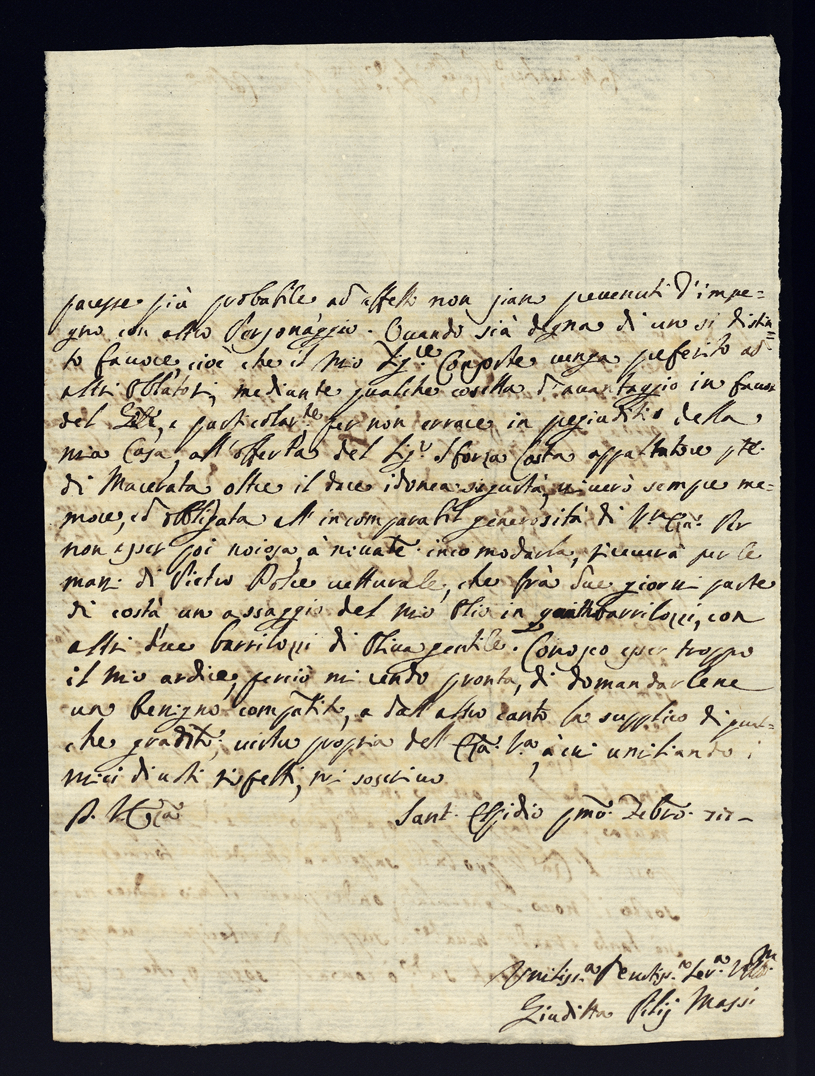 paresse più probabile ad effetto non siano prevenuti d'impe=
gno con altro Personaggio. Quando sià degna di un si distin=
to favore, cioè che il mio Sig.re Consorte venga preferito ad
altri Oblatori, mediante qualche cosetta d'avantaggio in favor
del e particolar.te per non errare in pregiuditio della
mia Casa, all'offerta del Sig.r Sforza Costa appaltatore pte.
di Macerata oltre il dare idonea sigurtà, viverò sempre me=
more, ed obbligata all'incomparabil generosità di V.ra Per
non esser poi noiosa, à incomodarla, riceverà per le
mani di Pietro vetturale, che frà due giorni parte
di costà un assaggio del mio Olio in barrilozzi, con
altri due barrilozzi di Oliva gentile. Conosco esser troppo
il mio ardire, perciò mi rendo pronta, di domandarlene
un benigno compatito, e dall'altro canto la supplico di qual=
che gradito, virtù propria dell' V.ra, à cui umiliando i
miei divoti rispetti, mi soscrivo
Sant' Elpidio pmo.
Umiliss.a Devotiss.a Ser.a
Giuditta Massi